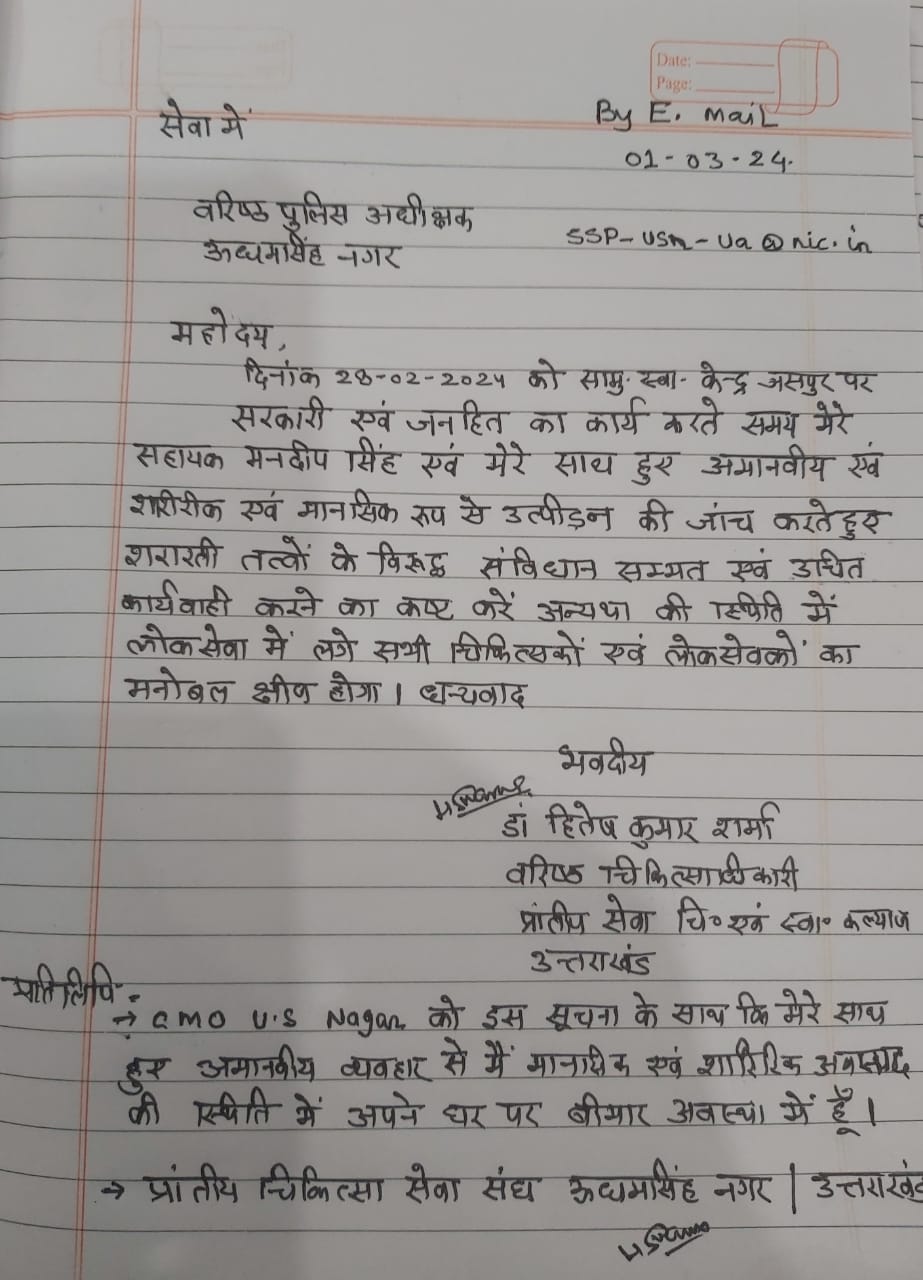 Date:
Page:
By E. Mail
सेवा में
01-03-24.
वरिष्ठ पुलिस अधीक्षक
SSP-USn-Ua@nic.in
ऊधमसिंह नगर
महोदय,
दिनांक 28-02-2024 को सामु. स्वा. केन्द्र जसपुर पर
सरकारी एवं जनहित का कार्य करते समय मेरे
सहायक मनदीप सिंह एवं मेरे साथ हुए अमानवीय एवं
शारीरीक एवं मानसिक रूप से उत्पीड़न की जांच करते हुए
शरारती तत्वों के विरूद्ध संविधान सम्मत एवं उचित
कार्यवाही करने का कष्ट करें अन्यथा की स्थिति में
लोकसेवा में लगे सभी चिकित्सकों एवं लोकसेवकों का
मनोबल क्षीण होगा। धन्यवाद
भवदीय
डॉ हितेष कुमार शर्मा
वरिष्ठ चिकित्साधिकारी
प्रांतीय सेवा चि॰ एवं स्वा॰ कल्याण
उत्तराखंड
प्रतिलिपि :-
→ CMO U.S Nagar को इस सूचना के साथ कि मेरे साथ
हुए अमानवीय व्यवहार से मैं मानसिक एवं शारिरिक अवसाद
की स्थिति में अपने घर पर बीमार अवस्था में हूँ।
→ प्रांतीय चिकित्सा सेवा संघ ऊधमसिंह नगर | उत्तराखंड